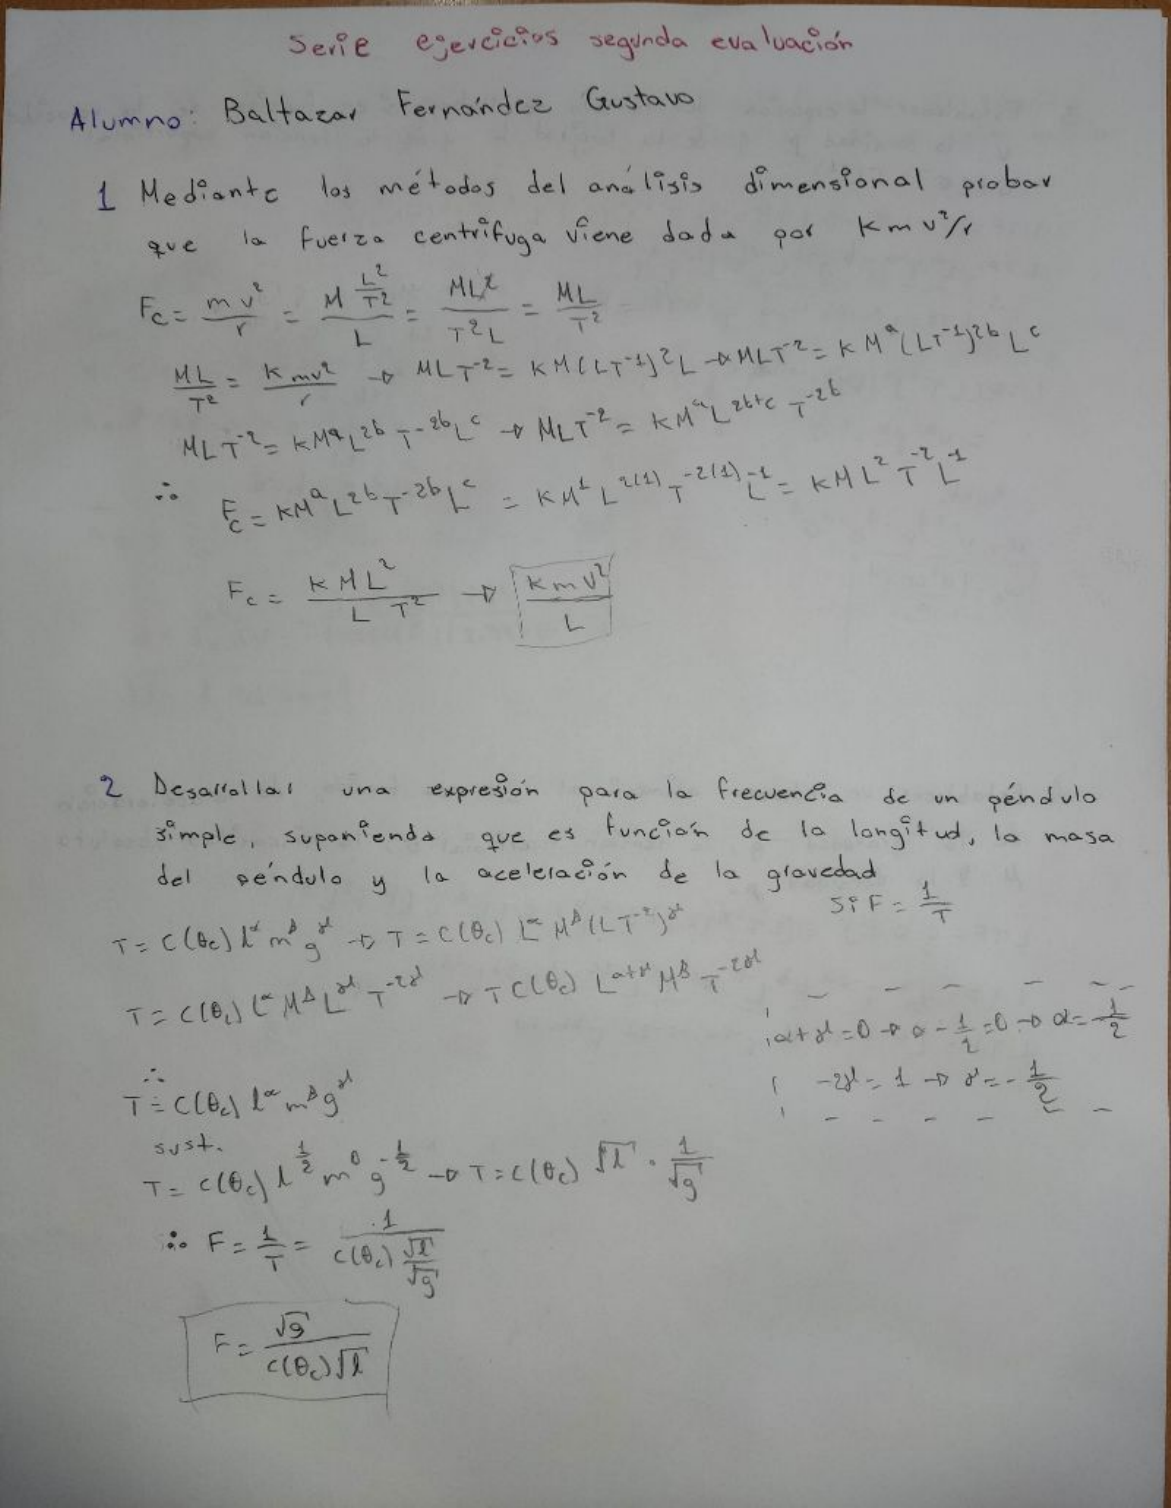 Serie ejercicios segunda evaluación
Alumno: Baltazar Fernández Gustavo
1 Mediante los métodos del análisis dimensional probar
que la fuerza centrífuga viene dada por K m v²/r
Fc = m v² / r = M L²/T² / L = ML² / T² L = ML / T²
ML / T² = K mv² / r → MLT⁻² = KM(LT⁻¹)²L → MLT⁻² = KMᵃ(LT⁻¹)²ᵇ Lᶜ
MLT⁻² = KMᵃL²ᵇT⁻²ᵇLᶜ → MLT⁻² = KMᵃL²ᵇ⁺ᶜ T⁻²ᵇ
∴ Fc = KMᵃL²ᵇT⁻²ᵇLᶜ = KM¹L²⁽¹⁾T⁻²⁽¹⁾L⁻¹ = KML²T⁻²L⁻¹
Fc = KML² / L T² → K m v² / L
2 Desarrollar una expresión para la frecuencia de un péndulo
simple, suponiendo que es función de la longitud, la masa
del péndulo y la aceleración de la gravedad
Si F = 1/T
T = C(θc) l^α m^β g^γ → T = C(θc) L^α M^β (LT⁻²)^γ
T = C(θc) L^α M^β L^γ T^-2γ → T C(θc) L^α+γ M^β T^-2γ
α+γ = 0 → α - 1/2 = 0 → α = 1/2
-2γ = 1 → γ = -1/2
∴
T = C(θc) l^α m^β g^γ
sust.
T = C(θc) l^1/2 m⁰ g^-1/2 → T = C(θc) √l · 1/√g
∴ F = 1/T = 1 / C(θc) √l/√g
F = √g / C(θc)√l